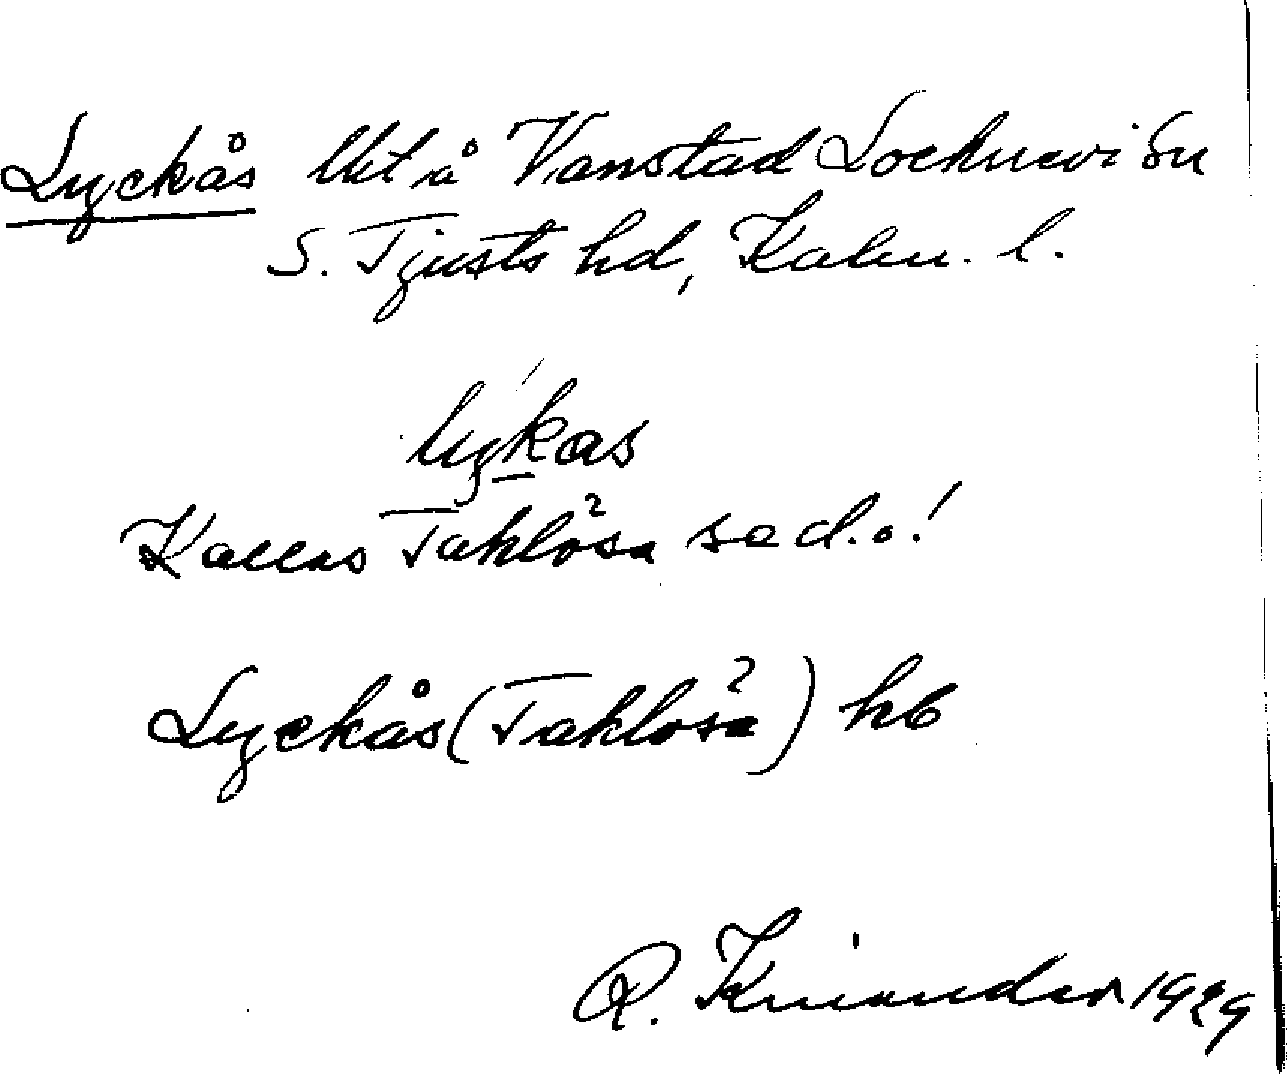 Lyckås lht å Vanstad Locknevi sn
S. Tjusts hd, Kalm. l.
lýkas
Kallas Taklösa sed.o!
Lyckås (Taklösa) hb
R. Kinander 1929